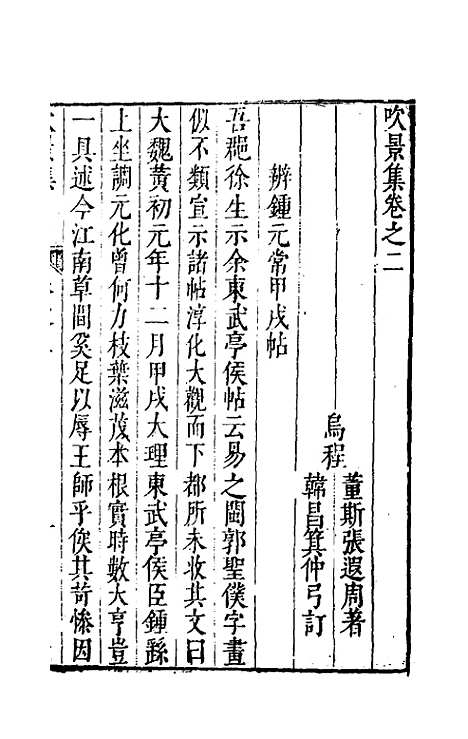 吹景集卷之二
烏程
董斯張遐周著
韓昌箕仲弓訂
辨鍾元常甲戌帖
吾䣕徐生示余東武亭侯帖云易之閩郭聖僕字畫
似不類宣示諸帖淳化大觀而下都所未收其文曰
大魏黃初元年十二月甲戌大理東武亭侯臣鍾繇
上坐調元化曾何力枝葉滋茂本根實時數大亨豈
一具述今江南草間奚足以辱王師乎俟其苛慘因